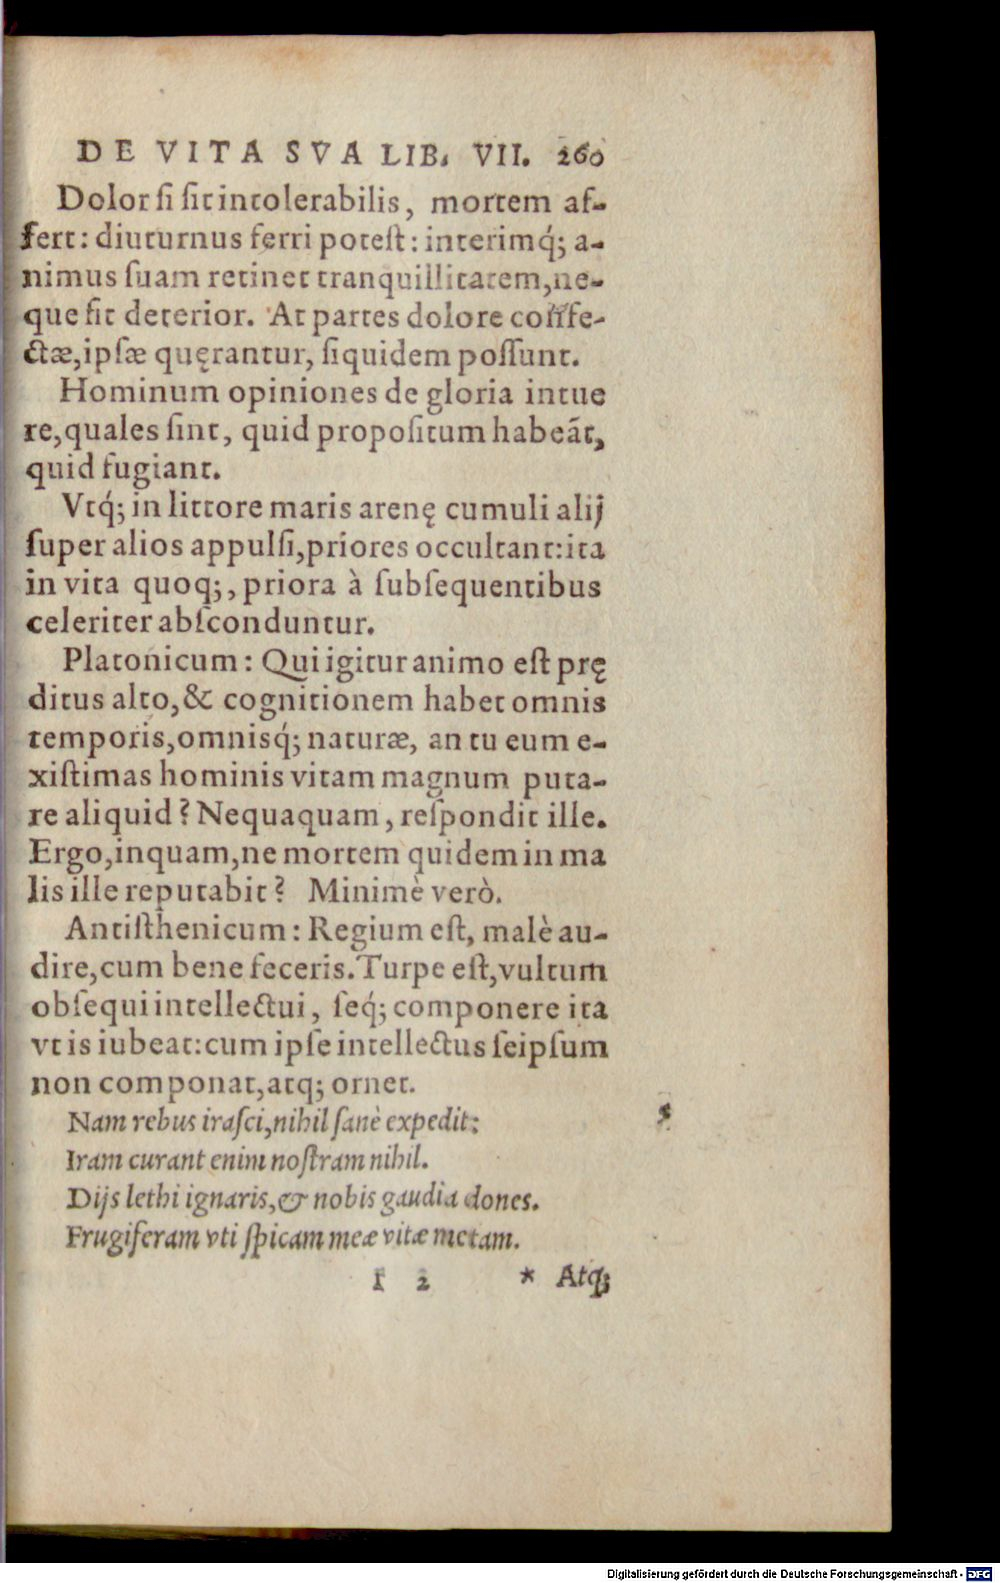 DE VITA SVA LIB. VII. 260
Dolor si sit intolerabilis, mortem af-
fert: diuturnus ferri potest: interimq́; a-
nimus suam retinet tranquillitatem, ne-
que fit deterior. At partes dolore confe-
ctæ, ipsæ quęrantur, siquidem possunt.
Hominum opiniones de gloria intue
re, quales sint, quid propositum habeãt,
quid fugiant.
Vtq́; in littore maris arenę cumuli alij
super alios appulsi, priores occultant: ita
in vita quoq;, priora à subsequentibus
celeriter absconduntur.
Platonicum: Qui igitur animo est prę
ditus alto, & cognitionem habet omnis
temporis, omnisq́; naturæ, an tu eum e-
xistimas hominis vitam magnum puta-
re aliquid? Nequaquam, respondit ille.
Ergo, inquam, ne mortem quidem in ma
lis ille reputabit? Minimè verò.
Antisthenicum: Regium est, malè au-
dire, cum bene feceris. Turpe est, vultum
obsequi intellectui, seq́; componere ita
vt is iubeat: cum ipse intellectus seipsum
non componat, atq; ornet.
Nam rebus irasci, nihil sanè expedit:
Iram curant enim nostram nihil.
Dijs lethi ignaris, & nobis gaudia dones.
Frugiferam vti spicam meæ vitæ metam.
I 2 * Atq;
Digitalisierung gefördert durch die Deutsche Forschungsgemeinschaft - DFG